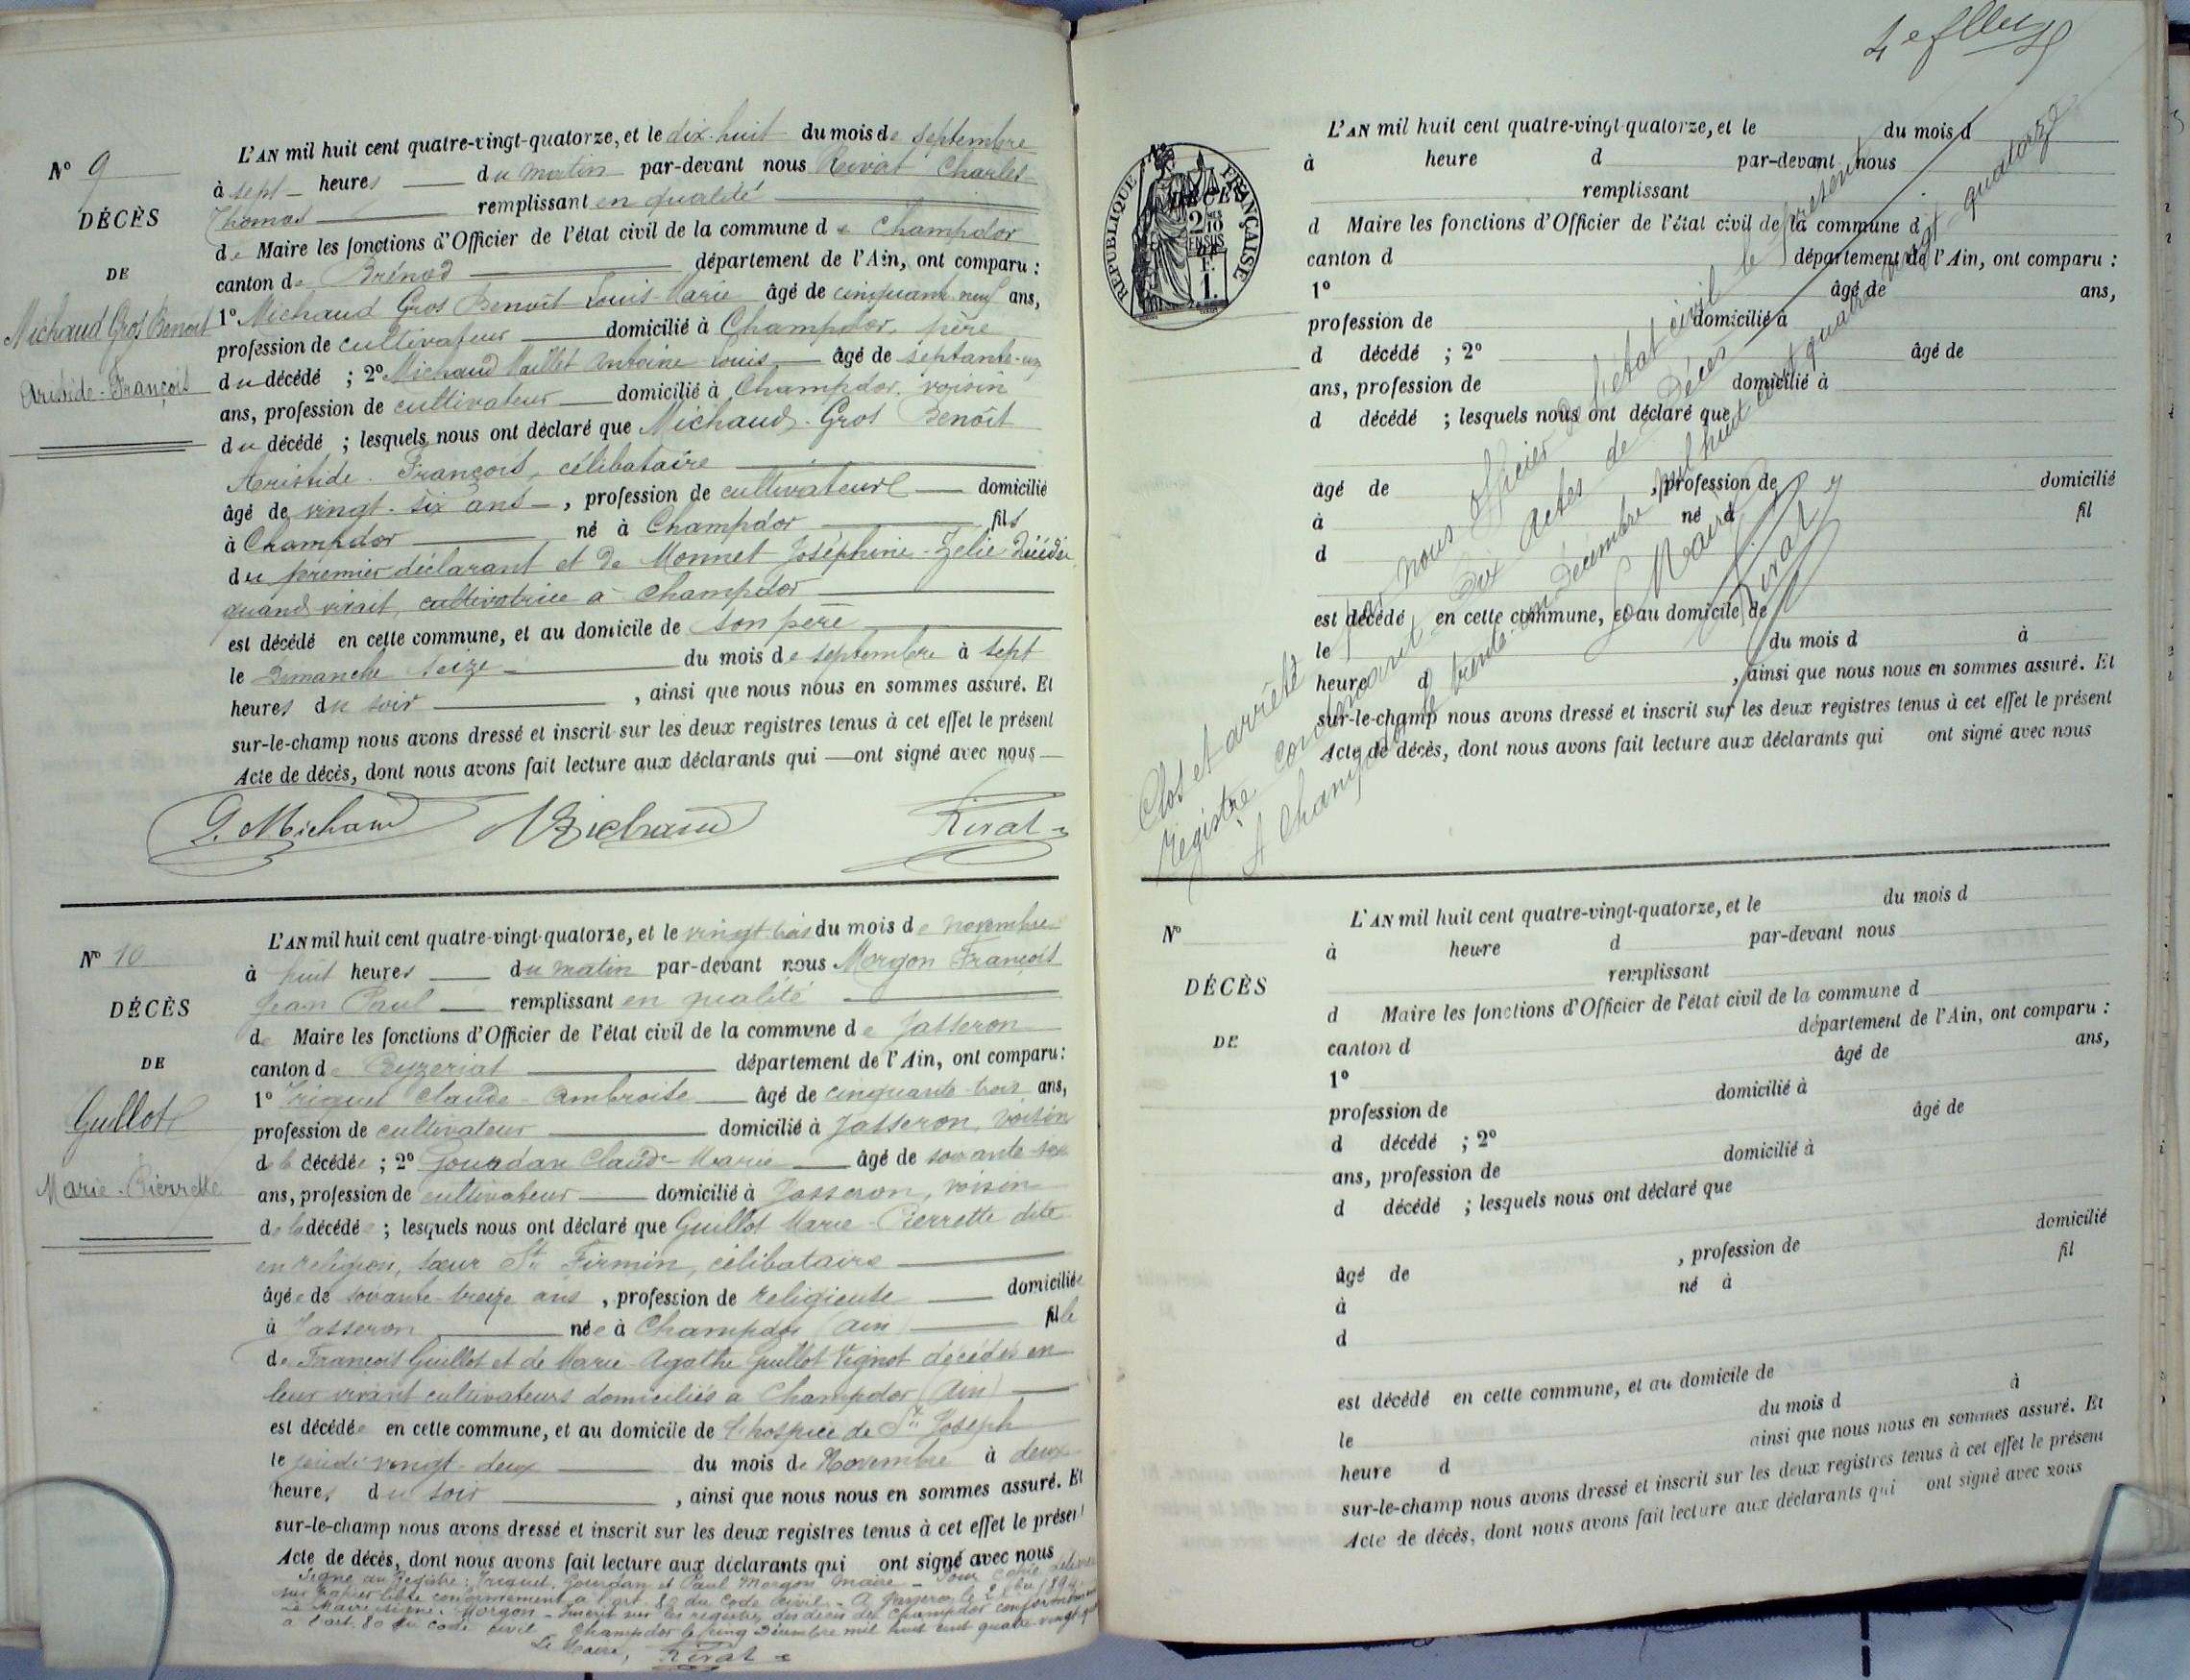 N° 9
DÉCÈS
DE
Michaud Gros Benoit
Aristide-François
L'AN mil huit cent quatre-vingt-quatorze, et le dix-huit du mois de Septembre
à sept heures du matin par-devant nous Rivat Charles
Thomas remplissant en qualité
de Maire les fonctions d'Officier de l'état civil de la commune de Champdor
canton de Brénod département de l'Ain, ont comparu :
1° Michaud Gros Benoit Louis-Marie âgé de cinquante neuf ans,
profession de cultivateur domicilié à Champdor, père
du décédé ; 2° Michaud Maillet Antoine Louis âgé de septante-un
ans, profession de cultivateur domicilié à Champdor, voisin
du décédé ; lesquels nous ont déclaré que Michaud-Gros Benoît
Aristide-François, célibataire
âgé de vingt-six ans, profession de cultivateur domicilié
à Champdor né à Champdor fils
du premier déclarant et de Monnet Joséphine-Zélie décédée
quand vivait, cultivatrice à Champdor
est décédé en cette commune, et au domicile de son père
le Dimanche seize du mois de septembre à sept
heures du soir, ainsi que nous nous en sommes assuré. Et
sur-le-champ nous avons dressé et inscrit sur les deux registres tenus à cet effet le présent
Acte de décès, dont nous avons fait lecture aux déclarants qui ont signé avec nous
Michaud Michaud Rivat
N° 10
DÉCÈS
DE
Guillot
Marie-Pierrette
L'AN mil huit cent quatre-vingt-quatorze, et le vingt-trois du mois de novembre
à huit heures du matin par-devant nous Morgon François
Jean Paul remplissant en qualité
de Maire les fonctions d'Officier de l'état civil de la commune de Jasseron
canton de Ceyzeriat département de l'Ain, ont comparu :
1° Triquet Claude-Ambroise âgé de cinquante-trois ans,
profession de cultivateur domicilié à Jasseron, voisin
de la décédée ; 2° Gourdan Claude-Marie âgé de soixante-six
ans, profession de cultivateur domicilié à Jasseron, voisin
de la décédée ; lesquels nous ont déclaré que Guillot Marie-Pierrette dite
en religion, sœur St Firmin, célibataire
âgée de soixante-treize ans, profession de religieuse domiciliée
à Jasseron née à Champdor (Ain) fille
de François Guillot et de Marie-Agathe Guillot Vignot décédés en
leur vivant cultivateurs domiciliés à Champdor (Ain)
est décédée en cette commune, et au domicile de l'hospice de St Joseph
le jeudi vingt-deux du mois de Novembre à deux
heures du soir, ainsi que nous nous en sommes assuré. Et
sur-le-champ nous avons dressé et inscrit sur les deux registres tenus à cet effet le présent
Acte de décès, dont nous avons fait lecture aux déclarants qui ont signé avec nous
Signé au Registre : Triquet, Gourdan et Paul Morgon Maire - Pour copie délivrée
sur papier libre conformément à l'art. 80 du Code Civil - A Jasseron le
Le Maire signé : Morgon - Inscrit sur les registres des décès de Champdor conformément
à l'art. 80 du code civil Champdor le cinq Décembre mil huit cent quatre-vingt
Le Maire, Rivat
RÉPUBLIQUE FRANÇAISE
2/10 EN SUS
DÉCÈS
DE
L'AN mil huit cent quatre-vingt-quatorze, et le du mois d
à heure d par-devant nous
remplissant
d Maire les fonctions d'Officier de l'état civil de la commune d
canton d département de l'Ain, ont comparu :
1° âgé de ans,
profession de domicilié à
d décédé ; 2° âgé de
ans, profession de domicilié à
d décédé ; lesquels nous ont déclaré que
âgé de , profession de domicilié
à né à fil
d
est décédé en cette commune, et au domicile de
le du mois d à
heure d , ainsi que nous nous en sommes assuré. Et
sur-le-champ nous avons dressé et inscrit sur les deux registres tenus à cet effet le présent
Acte de décès, dont nous avons fait lecture aux déclarants qui ont signé avec nous
Clos et arrêté par nous Officier de l'état civil le présent
registre contenant Dix Actes de Décès
A Champdor le trente-un Décembre mil huit cent quatre-vingt quatorze
Le Maire
Rivat
N°
DÉCÈS
DE
L'AN mil huit cent quatre-vingt-quatorze, et le du mois d
à heure d par-devant nous
remplissant
d Maire les fonctions d'Officier de l'état civil de la commune d
canton d département de l'Ain, ont comparu :
1° âgé de ans,
profession de domicilié à
d décédé ; 2° âgé de
ans, profession de domicilié à
d décédé ; lesquels nous ont déclaré que
âgé de , profession de domicilié
à né à fil
d
est décédé en cette commune, et au domicile de
le du mois d à
heure d ainsi que nous nous en sommes assuré. Et
sur-le-champ nous avons dressé et inscrit sur les deux registres tenus à cet effet le présent
Acte de décès, dont nous avons fait lecture aux déclarants qui ont signé avec nous